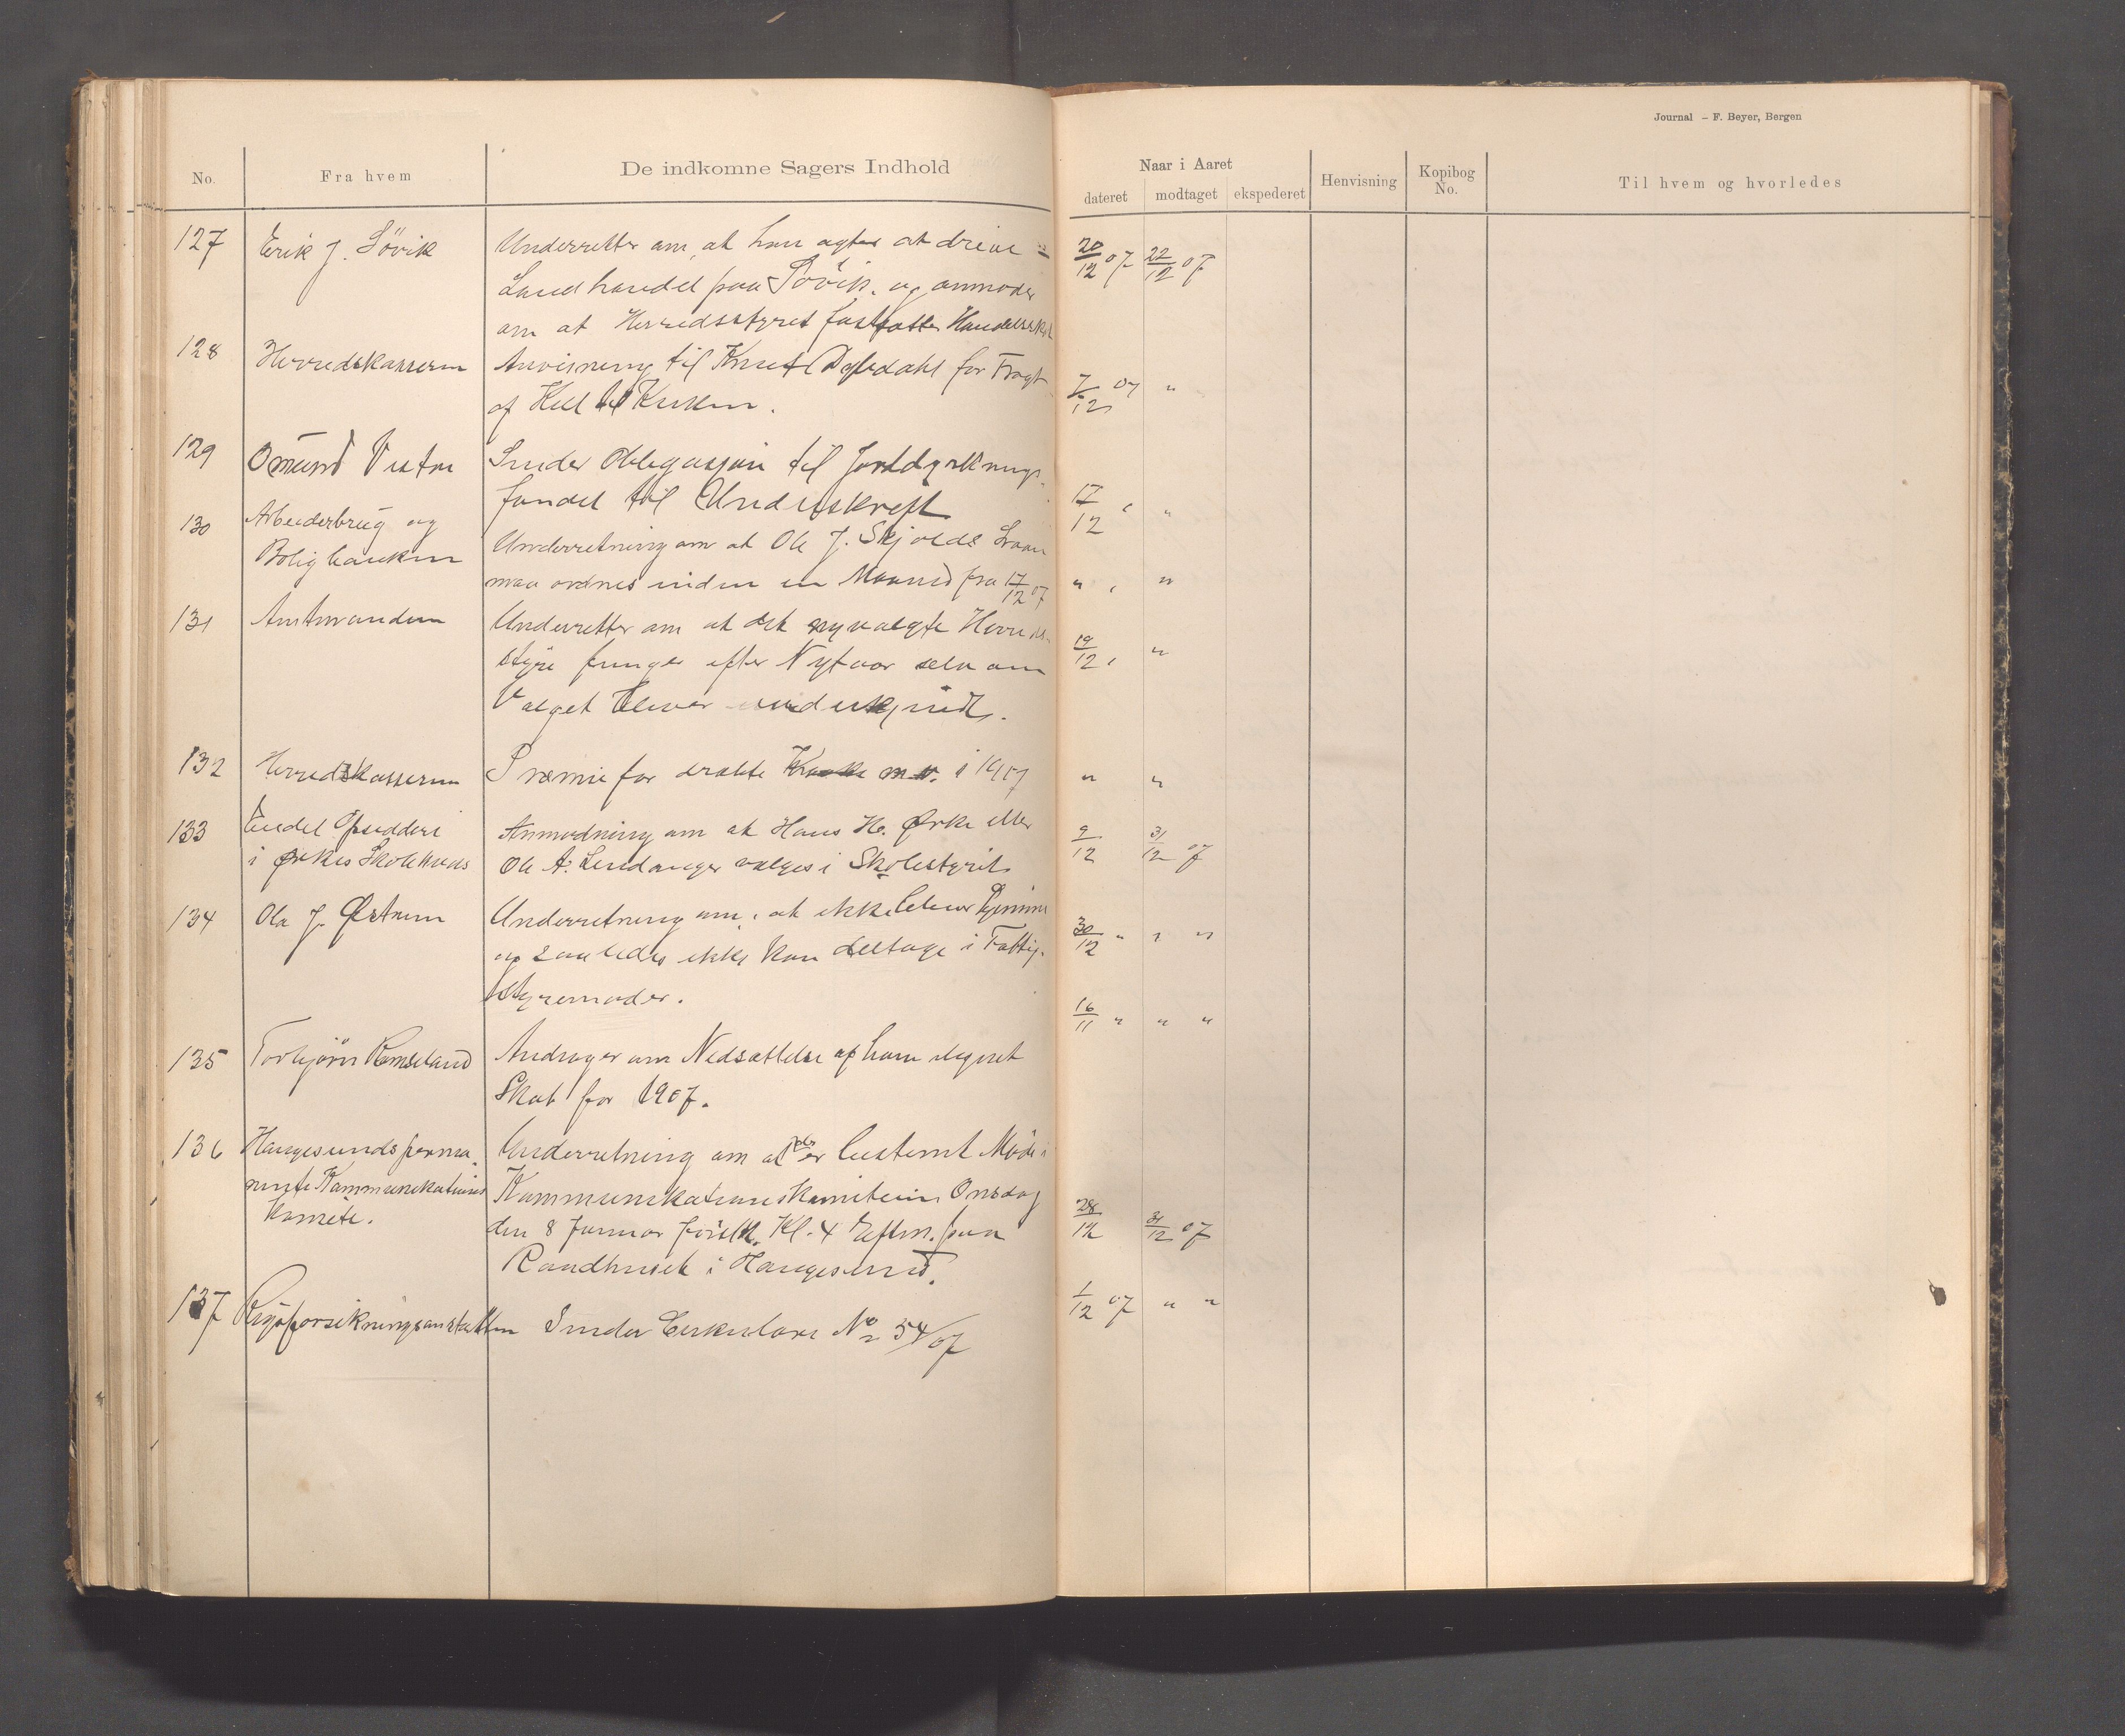 Journal – F. Beyer, Bergen
No. Fra hvem De indkomne Sagers Indhold
Naar i Aaret
dateret modtaget ekspederet Henvisning Kopibog No. Til hvem og hvorledes
127 Erik J. Sövik Underretter om, at han agter at drive 20/12 07 22/12 07
Landhandel paa Sövik, og anmoder
om at Herredsstyret fastsætter
128 Herredskasseren Anvisning til Knut for Fragt 7/12 07 "
af til
129 Omund Vistne Sender Obligasjon til Jorddyrknings- 17/12 " "
fondet til Underskrift
130 Arbeiderbrug og Underretning om at Ole J. Skjolds Laan
Boligbanken maa ordnes inden en Maaned fra 17/12 07 " " "
131 Amtmanden Underretter om at det nyvalgte Herreds- 19/12 " "
styre funger efter Nytaar selv om
Valget bliver underkjendt.
132 Herredskasseren Præmie for dræbte Kraake m.v. i 1907 " "
133 Endel Opsiddere Anmodning om at Hans H. Ørke eller 9/12 31/12 07
i Ørkes Skolekreds Ole A. Lindanger vælges i Skolestyret
134 Ola J. Østrem Underretning om, at ikke bliver hjemme 30/12 " " "
og saaledes ikke kan deltage i Fattig-
styremøder.
135 Torbjörn Ramseland Andrager om Nedsættelse af ham ilignet 16/11 " " "
Skat for 1907.
136 Haugesunds perma- Underretning om at der er bestemt Möde i
nente Kommunikations Kommunikationskomiteen Onsdag
komite. den 8 Januar förstk. Kl. 4 Efterm. paa 28/12 31/12 07
Raadhuset i Haugesund.
137 Rigsforsikringsanstalten Sender Cirkulære No 54/07 1/12 07 " "